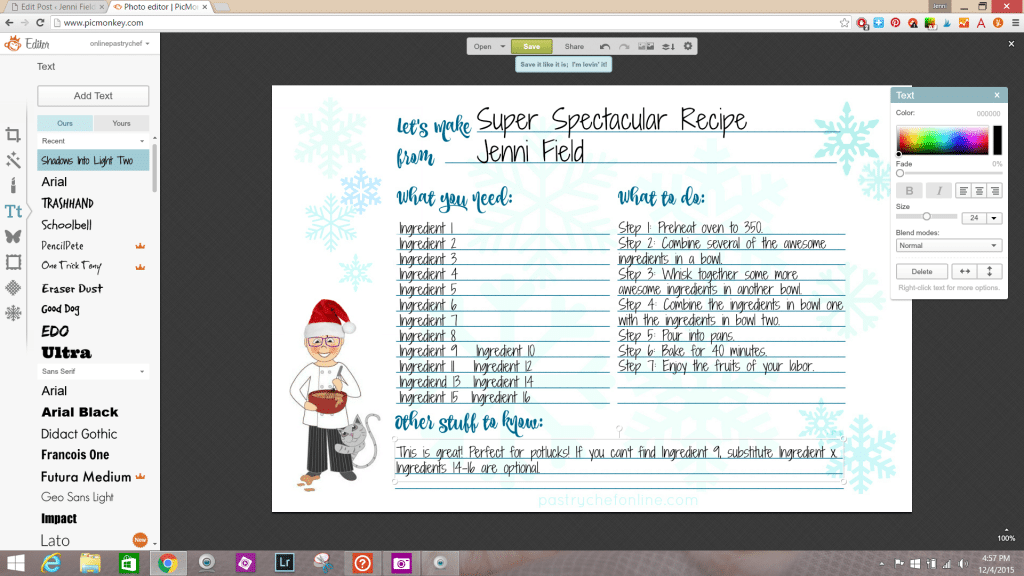 Edit Post ‹ Jenni Field
Photo editor | PicMonkey
Jenni
www.picmonkey.com
Editor
onlinepastrychef
Open
Save
Share
Save it like it is; I'm lovin' it!
Text
Add Text
Ours
Yours
Recent
Shadows Into Light Two
Arial
TRASHHAND
Schoolbell
PencilPete
One Trick Tony
Eraser Dust
Good Dog
EDO
Ultra
Sans Serif
Arial
Arial Black
Didact Gothic
Francois One
Futura Medium
Geo Sans Light
Impact
Lato
New
Tt
let's make Super Spectacular Recipe
from Jenni Field
What you need:
Ingredient 1
Ingredient 2
Ingredient 3
Ingredient 4
Ingredient 5
Ingredient 6
Ingredient 7
Ingredient 8
Ingredient 9 Ingredient 10
Ingredient 11 Ingredient 12
Ingrediend 13 Ingredient 14
Ingredient 15 Ingredient 16
What to do:
Step 1: Preheat oven to 350.
Step 2: Combine several of the awesome
ingredients in a bowl.
Step 3: Whisk together some more
awesome ingredients in another bowl.
Step 4: Combine the ingredients in bowl one
with the ingredients in bowl two.
Step 5: Pour into pans.
Step 6: Bake for 40 minutes.
Step 7: Enjoy the fruits of your labor.
other stuff to know:
This is great! Perfect for potlucks! If you can't find Ingredient 9, substitute Ingredient x.
Ingredients 14-16 are optional.
pastrychefonline.com
Text
Color:
000000
Fade
0%
B
I
Size
24
Blend modes:
Normal
Delete
Right-click text for more options.
100%
Lr
4:57 PM
12/4/2015